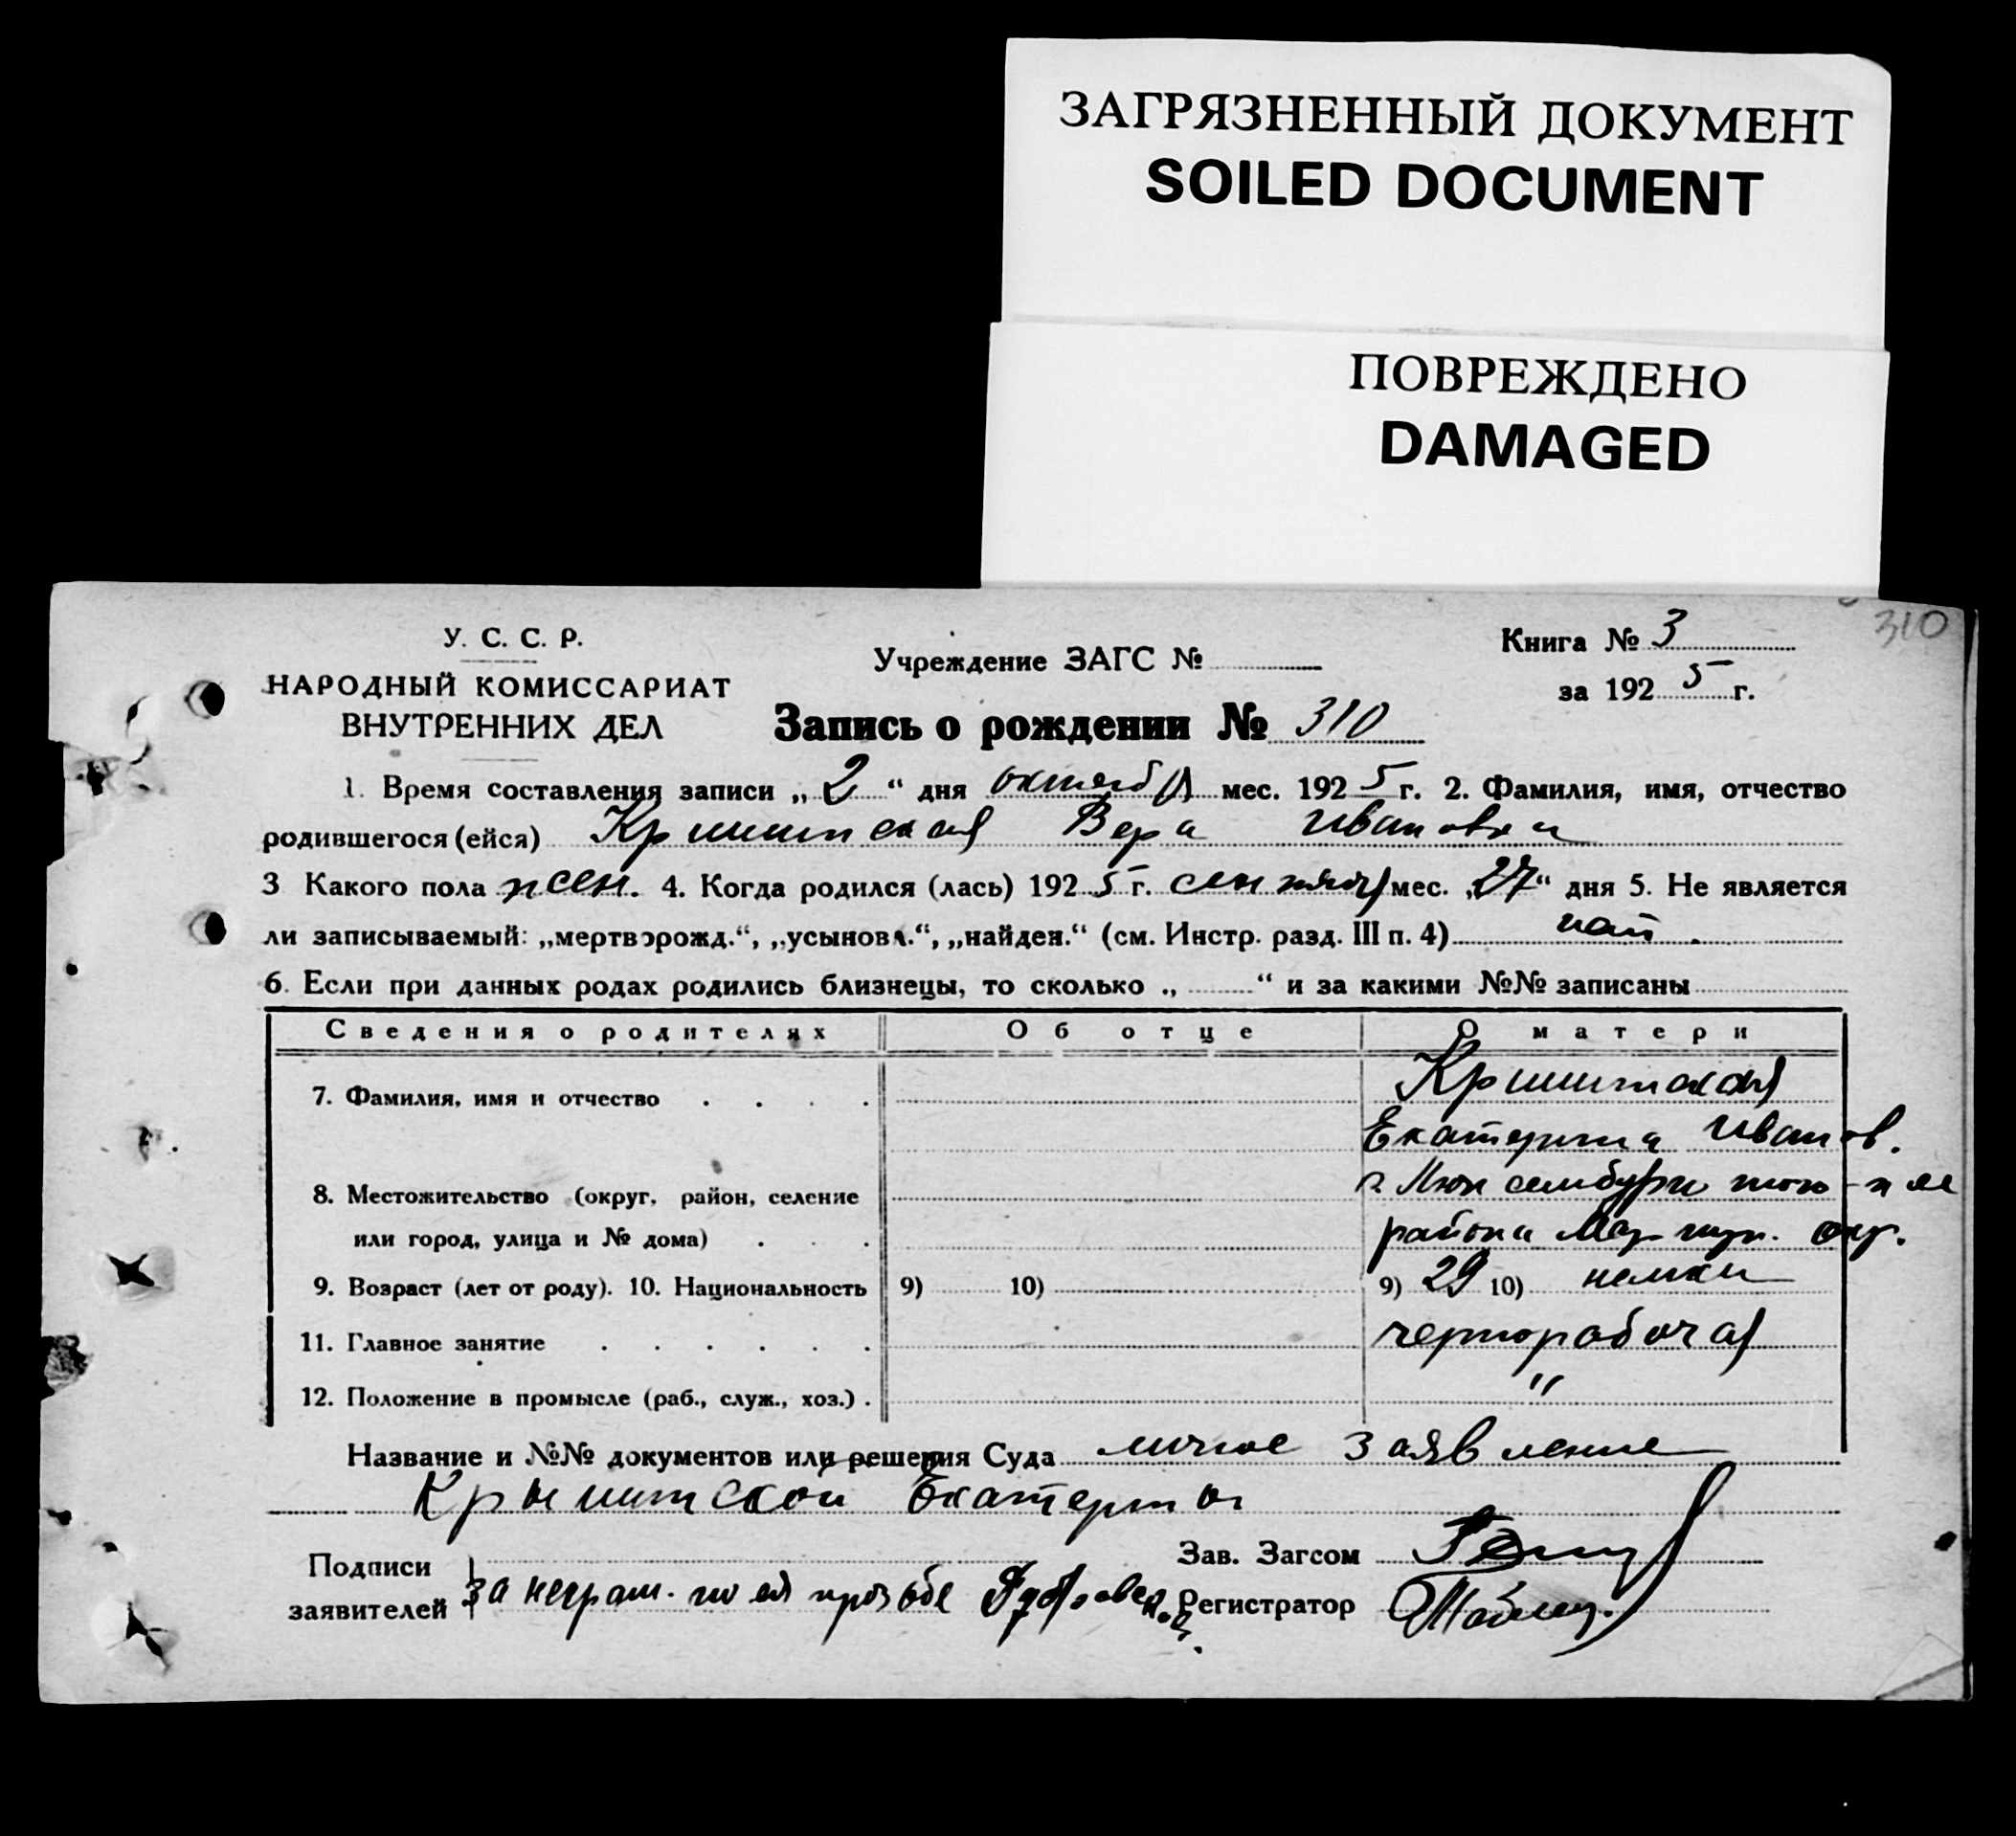 ЗАГРЯЗНЕННЫЙ ДОКУМЕНТ
SOILED DOCUMENT
ПОВРЕЖДЕНО
DAMAGED
310
У. С. С. Р.
НАРОДНЫЙ КОМИССАРИАТ
ВНУТРЕННИХ ДЕЛ
Учреждение ЗАГС №
Книга № 3
за 1925 г.
Запись о рождении № 310
1. Время составления записи „2“ дня октября мес. 1925 г. 2. Фамилия, имя, отчество
родившегося (ейся) Вера Ивановна
3 Какого пола жен. 4. Когда родился (лась) 1925 г. сентября мес. „27“ дня 5. Не является
ли записываемый: „мертворожд.“, „усыновл.“, „найден.“ (см. Инстр. разд. III п. 4)
6. Если при данных родах родились близнецы, то сколько „ “ и за какими №№ записаны
Сведения о родителях Об отце О матери
7. Фамилия, имя и отчество
Екатерина Иванов.
8. Местожительство (округ, район, селение
или город, улица и № дома) района окр.
9. Возраст (лет от роду). 10. Национальность 9) 10) 9) 29 10) немка
11. Главное занятие чернорабочая
12. Положение в промысле (раб., служ., хоз.) "
Название и №№ документов или решения Суда личное заявление
Екатерины
Подписи
заявителей за неграм. по ея прозьбе
Зав. Загсом
Регистратор